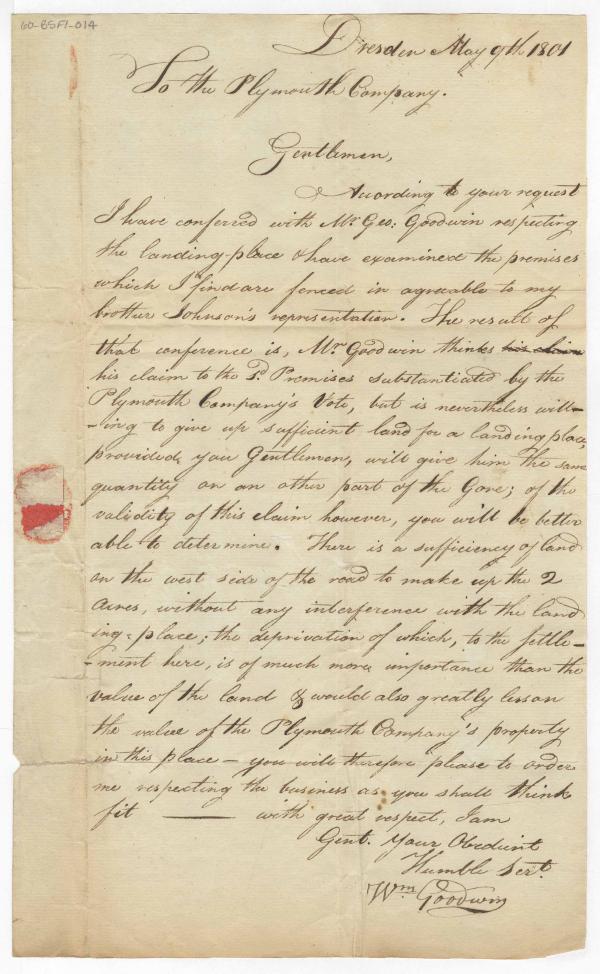 60-BSF1-014
Dresden May 9th 1801
To the Plymouth Company.
Gentlemen,
According to your request
I have conferred with Mr. Geo: Goodwin respecting
the landing-place & have examined the premises
which I find are fenced in agreable to my
brother Johnson's representation. The result of
that conference is, Mr. Goodwin thinks his claim
his claim to the Premises substantiated by the
Plymouth Company's Vote, but is nevertheless will-
-ing to give up sufficient land for a landing place,
provided, you Gentlemen, will give him the same
quantity on an other part of the Gore; of the
validity of this claim however, you will be better
able to determine. There is a sufficiency of land
on the west side of the road to make up the 2
Acres, without any interference with the land
ing-place; the deprivation of which, to the settle-
-ment here, is of much more importance than the
value of the land & would also greatly lesson
the value of the Plymouth Company's property
in this place - you will therefore please to order
me respecting the business as you shall think
fit ___ with great respect, I am
Gent. Your Obedient
Humble Sert.
Wm Goodwin